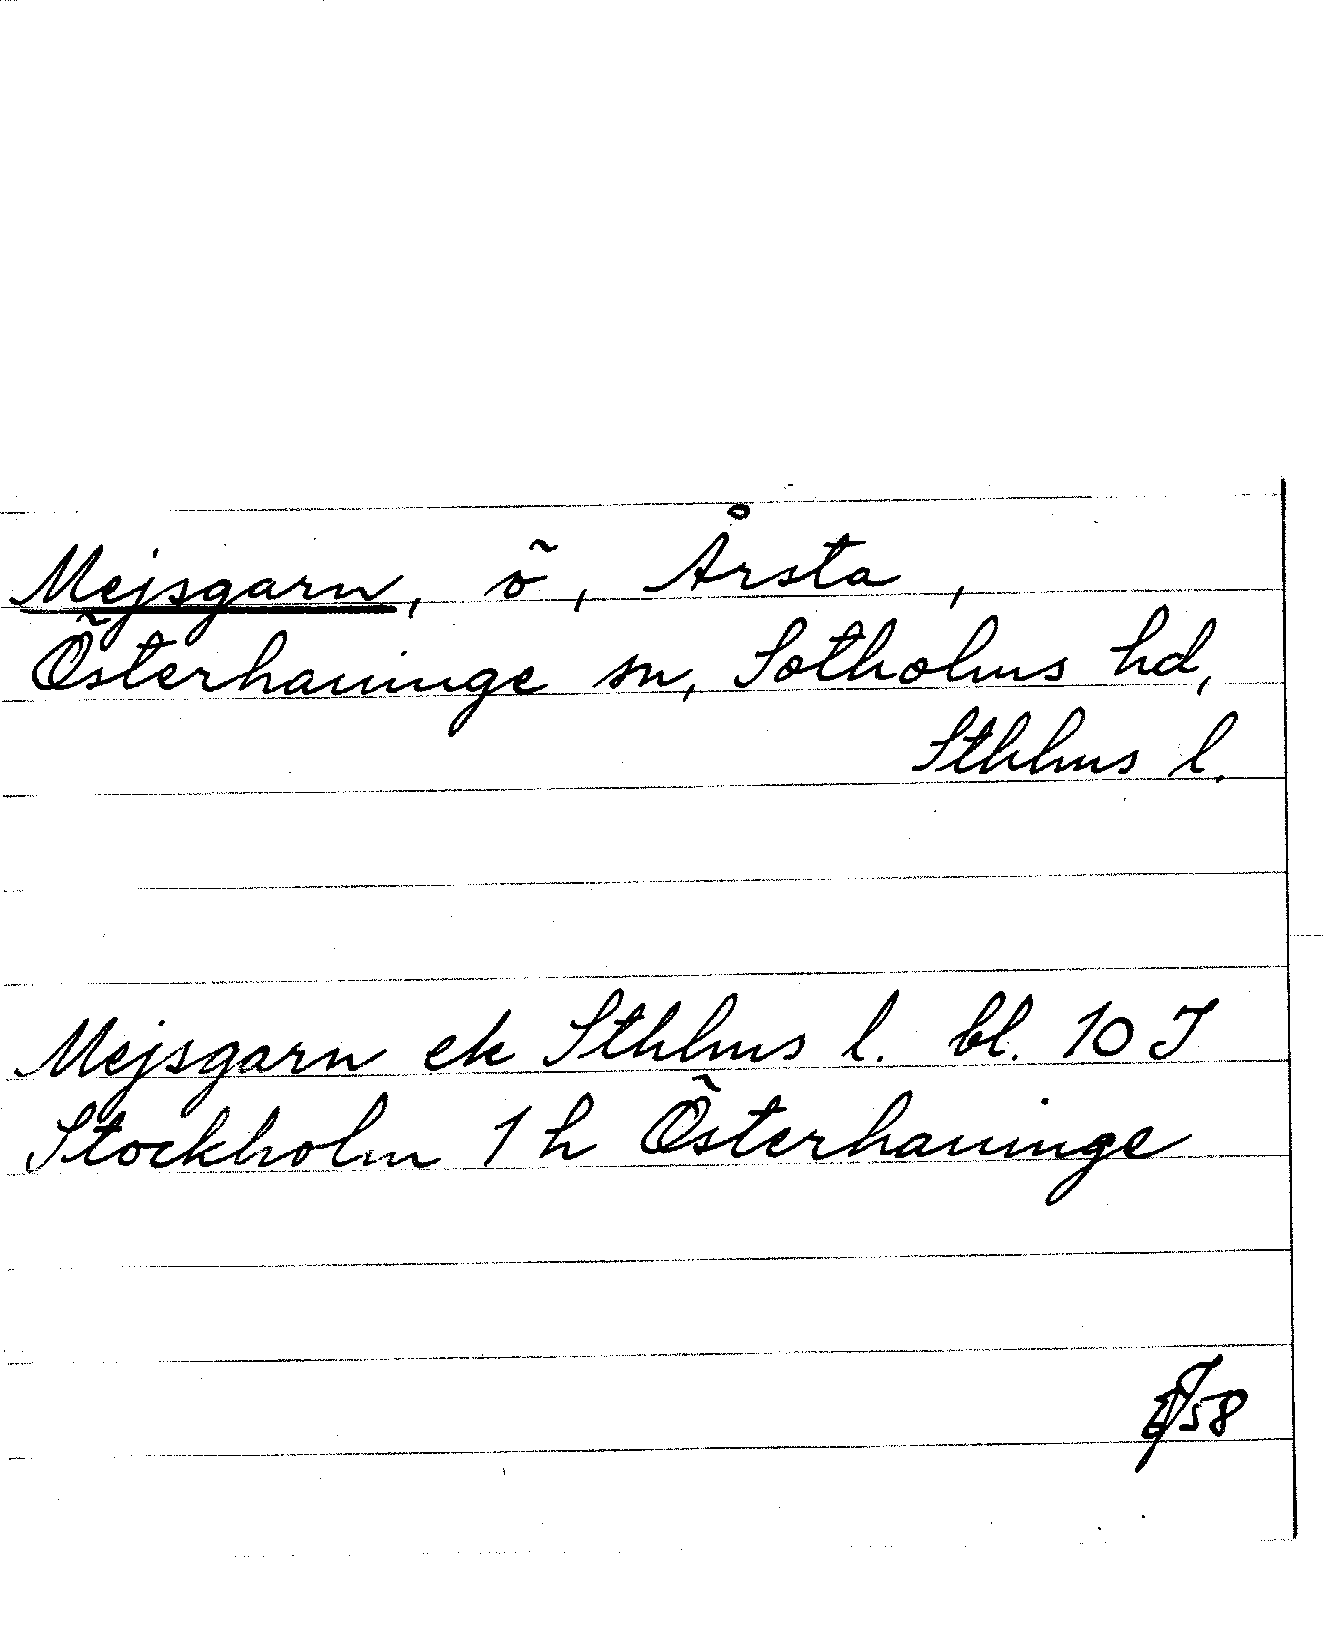 Mejsgarn, ö, Årsta,
Österhaninge sn, Sotholms hd,
Sthlms l.
Mejsgarn ek Sthlms l. bl. 10 J
Stockholm 1 h Österhaninge
58